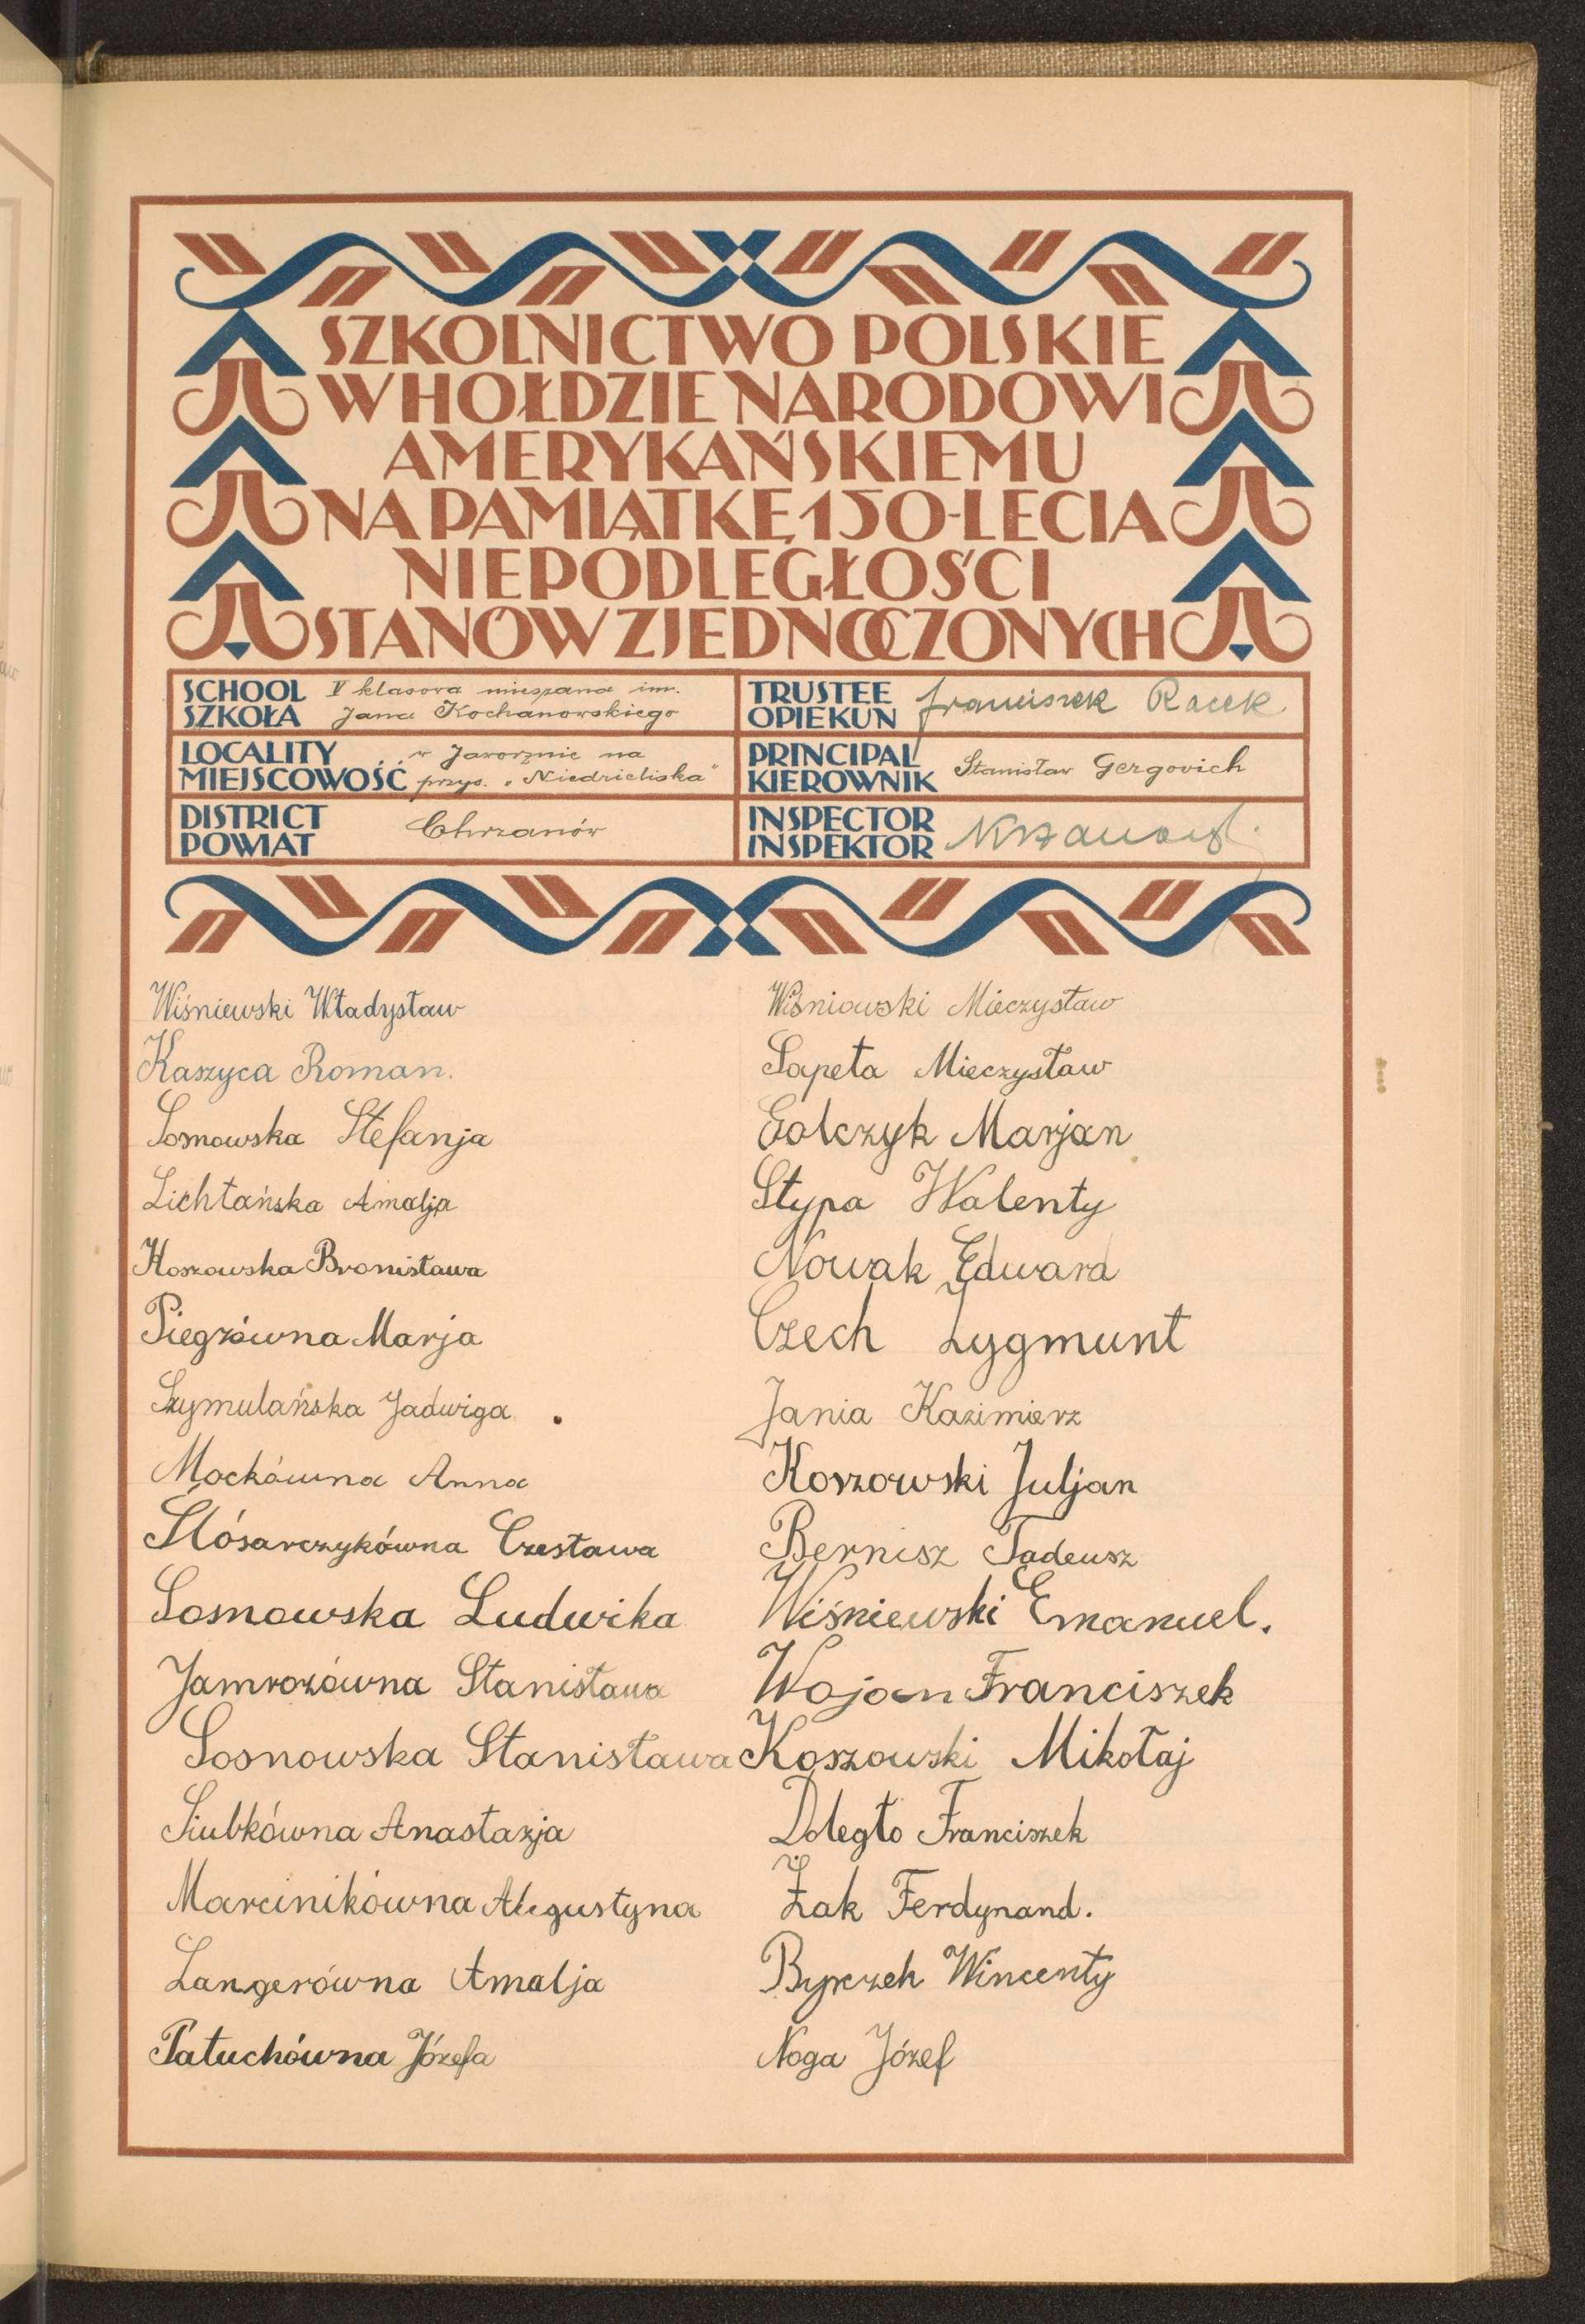 SZKOLNICTWO POLSKIE
W HOŁDZIE NARODOWI
AMERYKAŃSKIEMU
NA PAMIĄTKĘ 150-LECIA
NIEPODLEGŁOŚCI
STANÓW ZJEDNOCZONYCH
SCHOOL
SZKOŁA
V klasowa mieszana im.
Jana Kochanowskiego
TRUSTEE
OPIEKUN
Franciszek Racek
LOCALITY
MIEJSCOWOŚĆ
w Jaworznie na
przys. "Niedzieliska"
PRINCIPAL
KIEROWNIK
Stanisław Gergovich
DISTRICT
POWIAT
Chrzanów
INSPECTOR
INSPEKTOR
Wiśniewski Władysław
Kaszyca Roman.
Sosnowska Stefanja
Lichtańska Amalja
Koszowska Bronisława
Piegzówna Marja
Szymulańska Jadwiga
Mockówna Anna
Słósarczykówna Czesława
Sosnowska Ludwika
Jamrozówna Stanisława
Sosnowska Stanisława
Siubkówna Anastazja
Marcinikówna Augustyna
Langerówna Amalja
Patuchówna Józefa
Wiśniowski Mieczysław
Sapeta Mieczysław
Golczyk Marjan
Stypa Walenty
Nowak Edward
Czech Zygmunt
Jania Kazimierz
Koszowski Juljan
Bernisz Tadeusz
Wiśniewski Emanuel.
Wojan Franciszek
Koszowski Mikołaj
Doległo Franciszek
Żak Ferdynand.
Byrczek Wincenty
Noga Józef